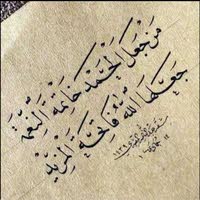 من جعل الحمد خاتمة النعمة
جعلها الله فاتحة المزيد